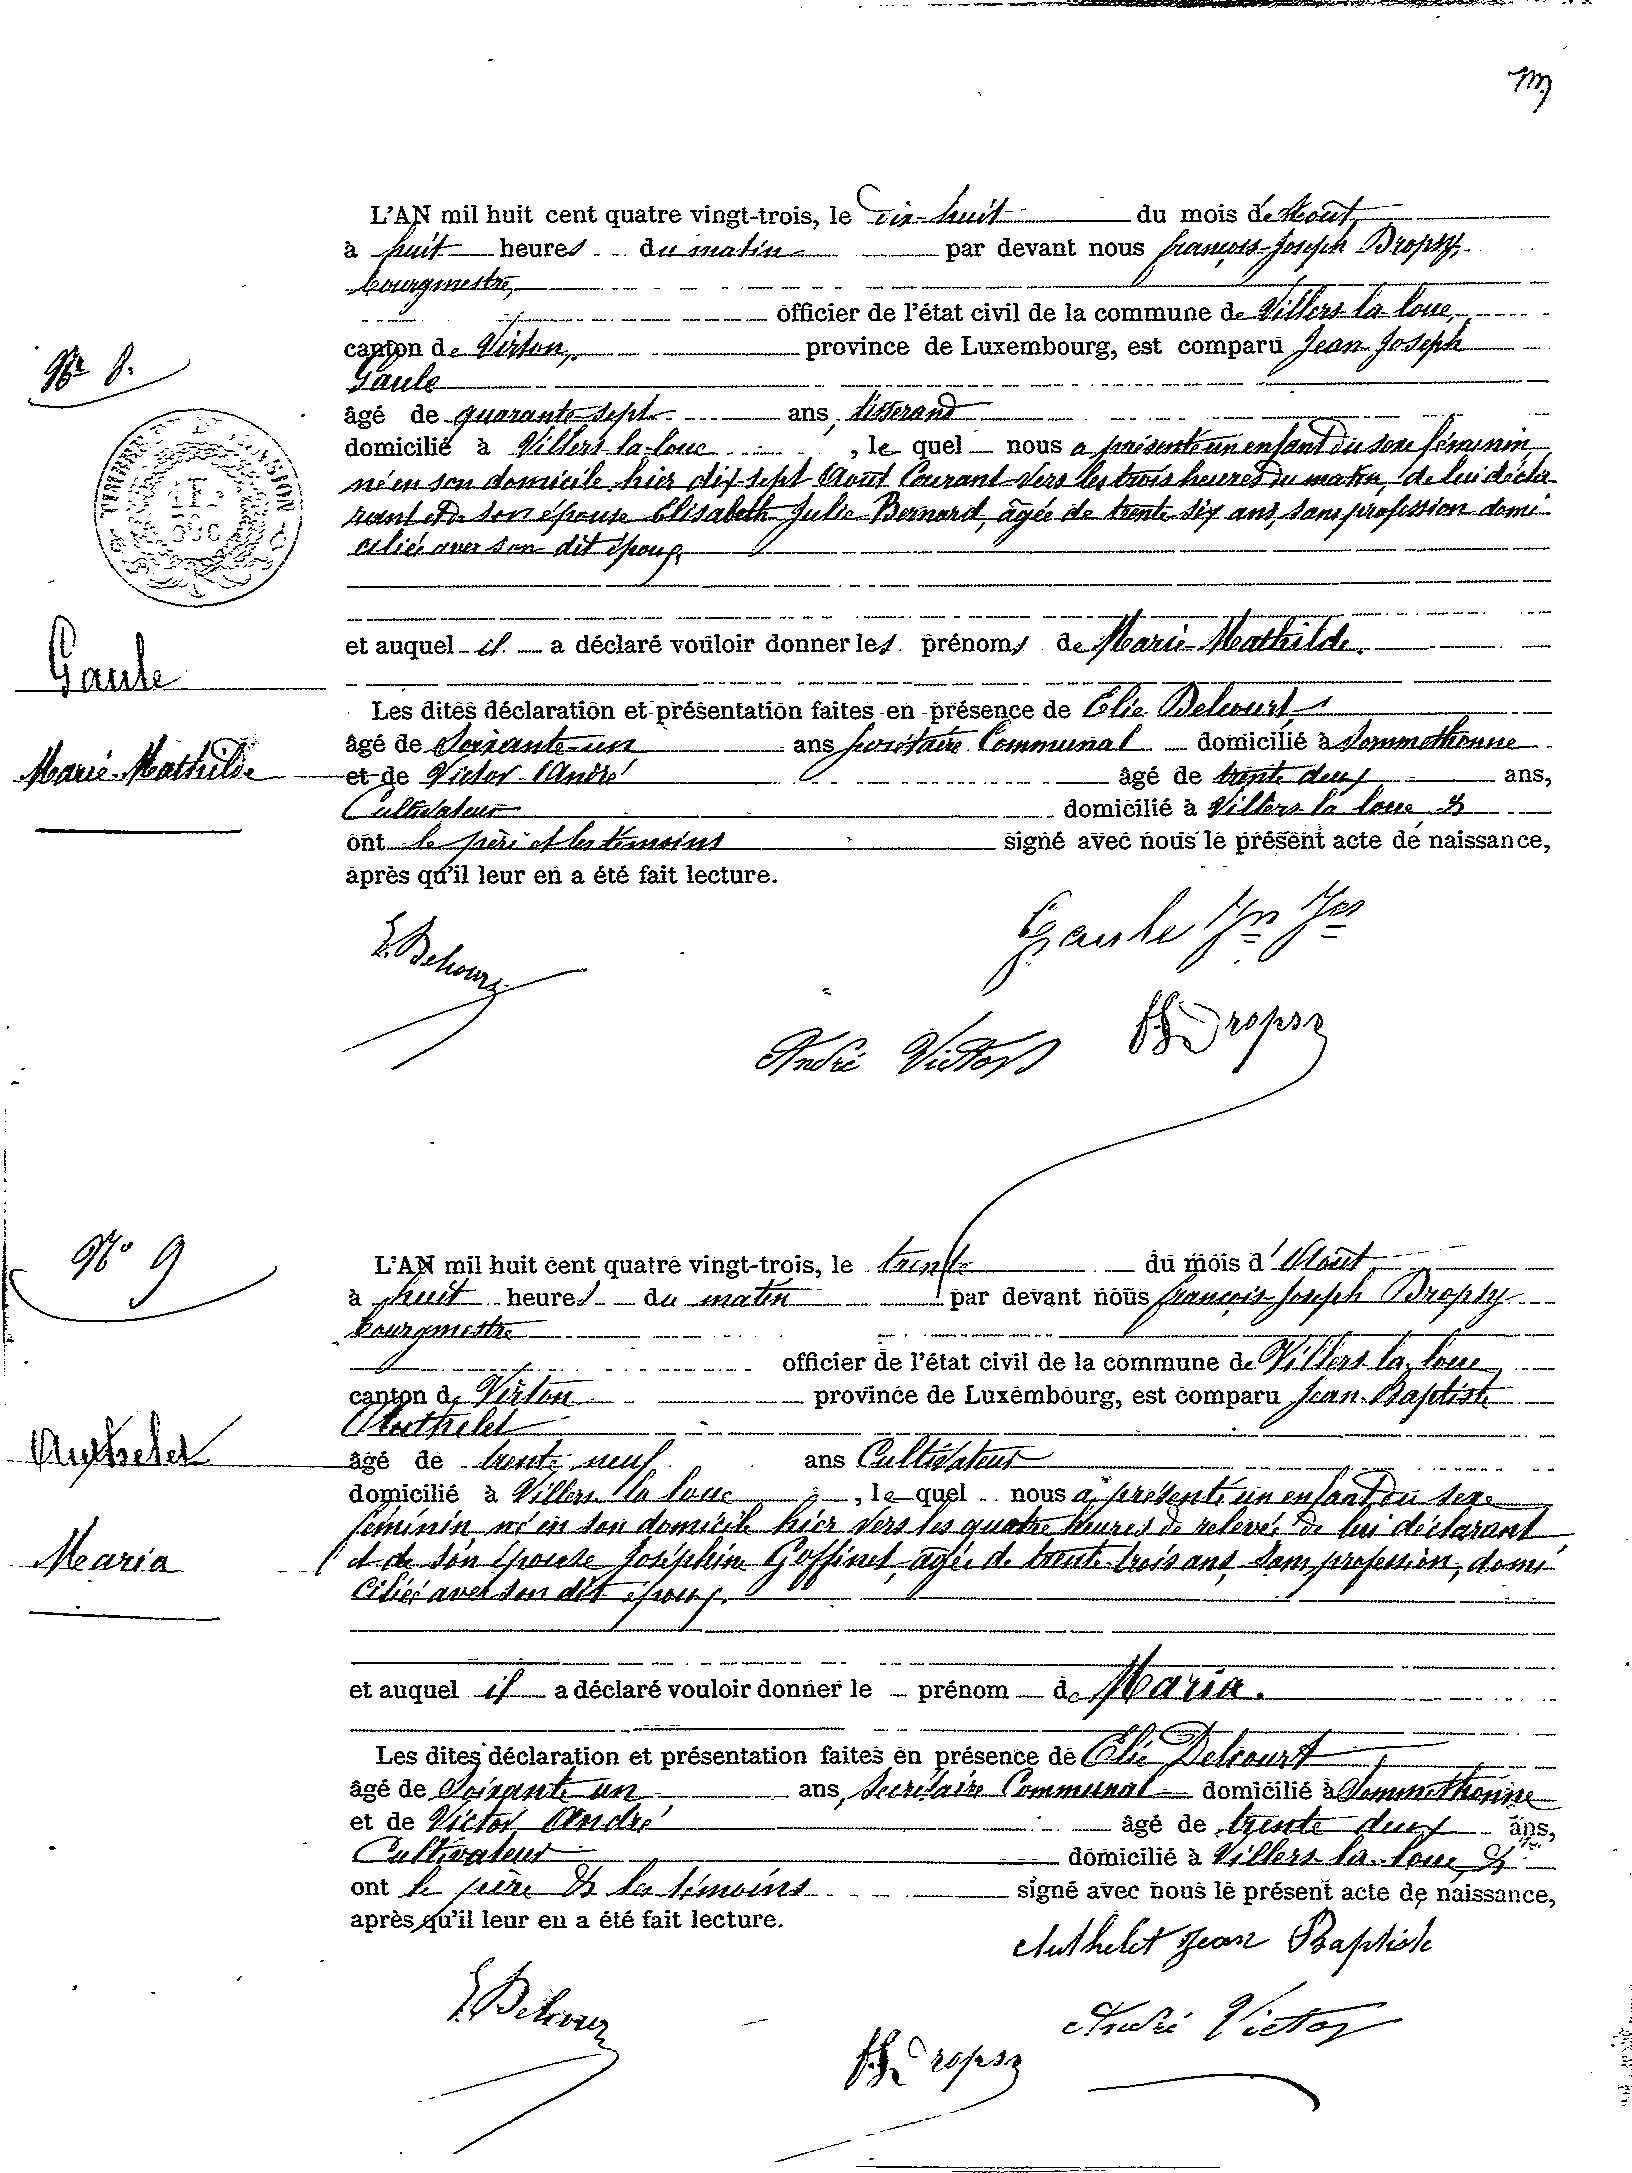 L'AN mil huit cent quatre vingt-trois, le Dix-huit du mois de Aout,
à huit heures du matin par devant nous françois-Joseph Dropsy,
bourgmestre,
officier de l'état civil de la commune de Villers la loue,
Nº 8.
canton de Virton, province de Luxembourg, est comparu Jean Joseph
Gaule
âgé de quarante-sept ans, tisserand
TIMBRE EXTENSION
domicilié à Villers-la-loue, le quel nous a présenté un enfant du sexe féminin
né en son domicile hier dix sept Aout Courant vers les trois heures du matin, de lui décla-
rant et de son épouse Elisabeth Julie Bernard, agée de trente six ans, sans profession domi-
ciliée avec son dit époux.
et auquel il a déclaré vouloir donner les prénoms de Marie-Mathilde.
Gaule
Les dites déclaration et présentation faites en présence de Elie Delcourt
âgé de Soixante-un ans secrétaire Communal domicilié à Sommethonne
Marie-Mathilde
et de Victor André âgé de trente deux ans,
Cultivateur domicilié à Villers la loue &
ont le père et les témoins signé avec nous le présent acte de naissance,
après qu'il leur en a été fait lecture.
E. Delcourt
Gaule Jn Jph
André Victor
fJDropsy
Nº 9
L'AN mil huit cent quatre vingt-trois, le trente du mois d'Aout
à huit heures du matin par devant nous françois-Joseph Dropsy
bourgmestre
officier de l'état civil de la commune de Villers la loue
canton de Virton province de Luxembourg, est comparu Jean-Baptiste
Authelet
Authelet
âgé de trente neuf ans Cultivateur
domicilié à Villers la loue, le quel nous a présenté un enfant du sexe
féminin né en son domicile hier vers les quatre heures de relevée, de lui déclarant
Maria
et de son épouse Joséphine Goffinet, agée de trente-trois ans, sans profession, domi-
ciliée avec son dit époux.
et auquel il a déclaré vouloir donner le prénom de Maria.
Les dites déclaration et présentation faites en présence de Elie Delcourt
âgé de Soixante un ans, secrétaire Communal domicilié à Sommethonne
et de Victor André âgé de trente deux ans,
Cultivateur domicilié à Villers-la-loue &
ont le père & les témoins signé avec nous le présent acte de naissance,
après qu'il leur en a été fait lecture.
Authelet Jean Baptiste
E. Delcourt
André Victor
fJDropsy